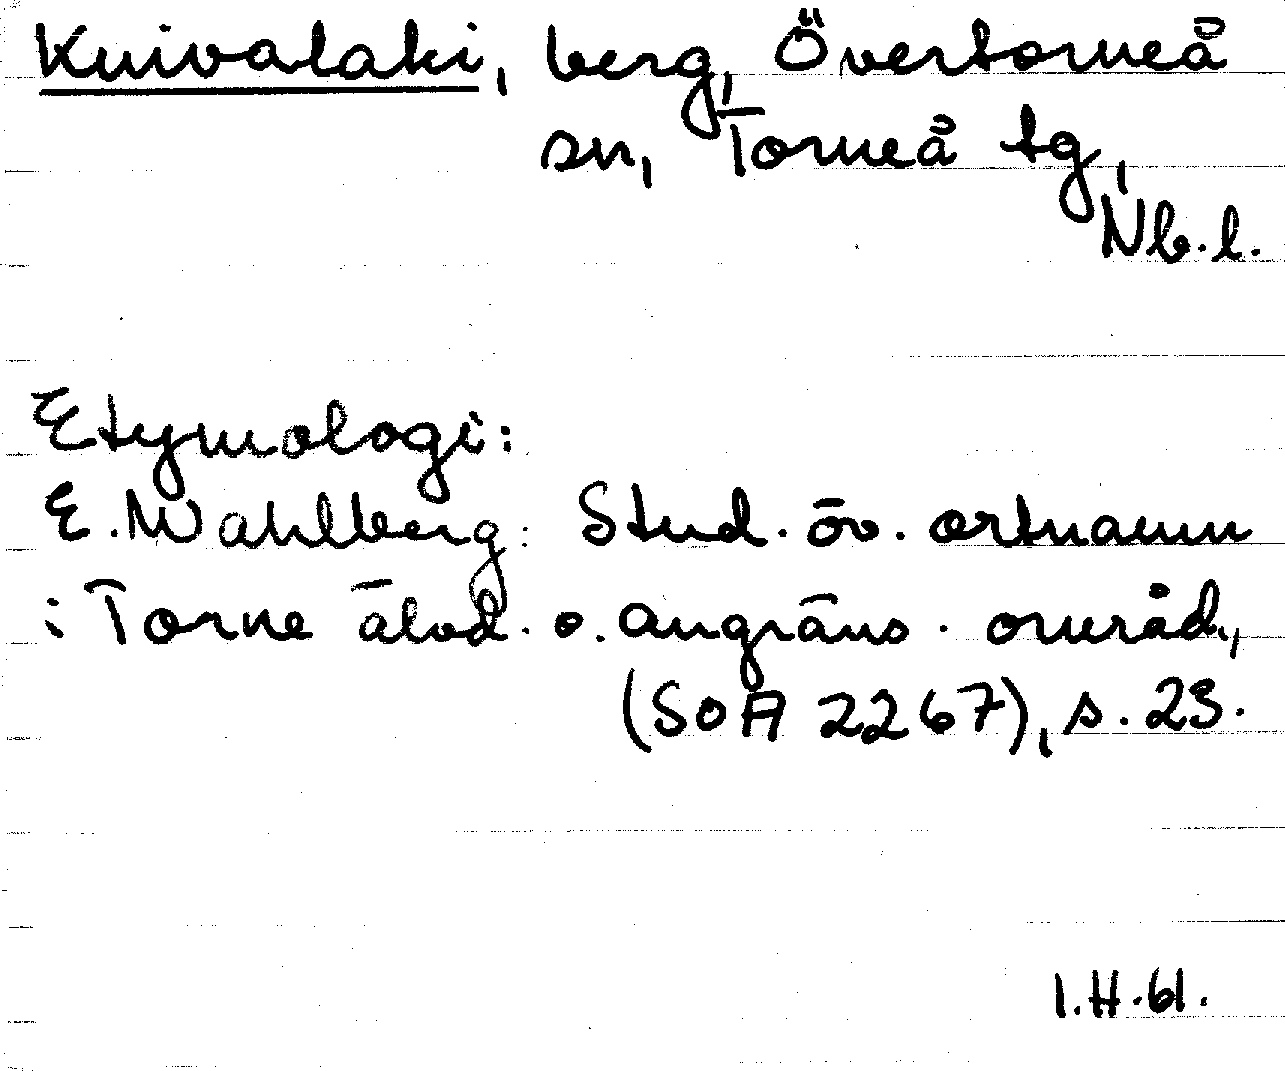 Kuivalaki, berg, Övertorneå
sn, Torneå tg,
Nb.l.
Etymologi:
E. Wahlberg: Stud. öv. ortnamn
i Torne älvd. o. angräns. områd.,
(SOA 2267), s. 23.
I.H.61.